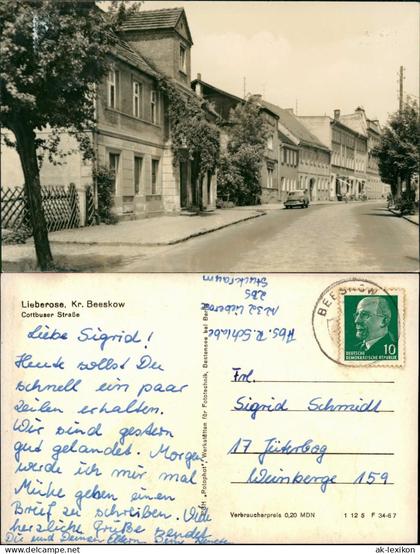 Lieberose, Kr. Beeskow
Cottbuser Straße
Liebe Sigrid!
Heute sollst Du
schnell ein paar
Zeilen erhalten.
Wir sind gestern
gut gelandet. Morgen
werde ich mir mal
Mühe geben einen
Brief zu schreiben. Viele
herzliche Grüße sendet
Dir und Deinen Eltern Deine
Abs. R.
1232 Lieberose
ZBS
"Rotophot", Werkstätten für Fototechnik, Bestensee bei Berlin
BEESKOW
10
DEUTSCHE
DEMOKRATISCHE REPUBLIK
Frl.
Sigrid Schmidt
17 Jüterbog
Weinberge 159
Verbraucherpreis 0,20 MDN
1 12 5 F 34-67
© ak-lexikon